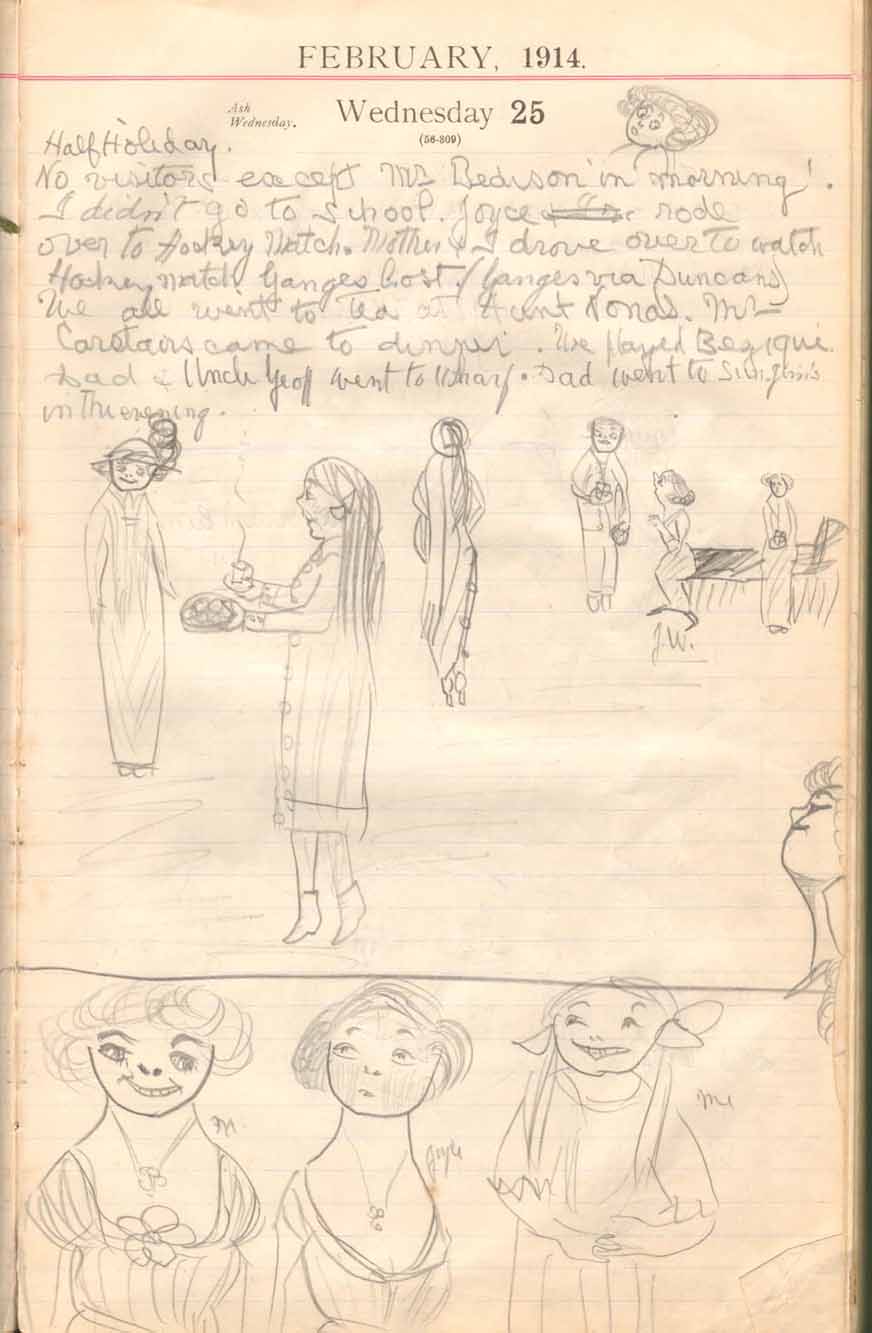 FEBRUARY, 1914.
Ash
Wednesday.
Wednesday 25
(56-309)
Half Holiday.
No visitors except Mr Bedison in morning'.
I didn't go to school. Joyce rode
over to Hockey Match. Mother & I drove over to watch
Hockey match Ganges lost. (Ganges via Duncans)
We all went to Tea at Aunt Nonas. Mr
Carstairs came to dinner. We played Bezique.
Dad & Uncle Geoff went to Wharf. Dad went to
in the evening.
J.W.
M.
Joyce
Me